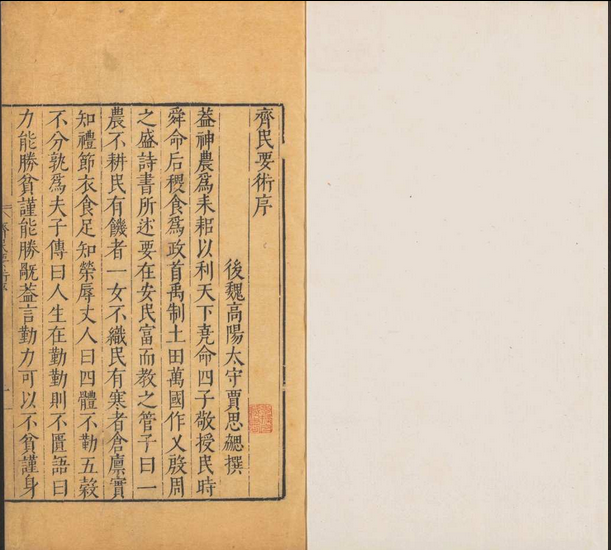 齊民要術序
後魏高陽太守賈思勰撰
葢神農爲耒耜以利天下堯命四子敬授民時
舜命后稷食爲政首禹制土田萬國作乂殷周
之盛詩書所述要在安民富而教之管子曰一
農不耕民有饑者一女不織民有寒者倉廩實
知禮節衣食足知榮辱丈人曰四體不勤五穀
不分孰爲夫子傳曰人生在勤勤則不匱語曰
力能勝貧謹能勝禍葢言勤力可以不貧謹身